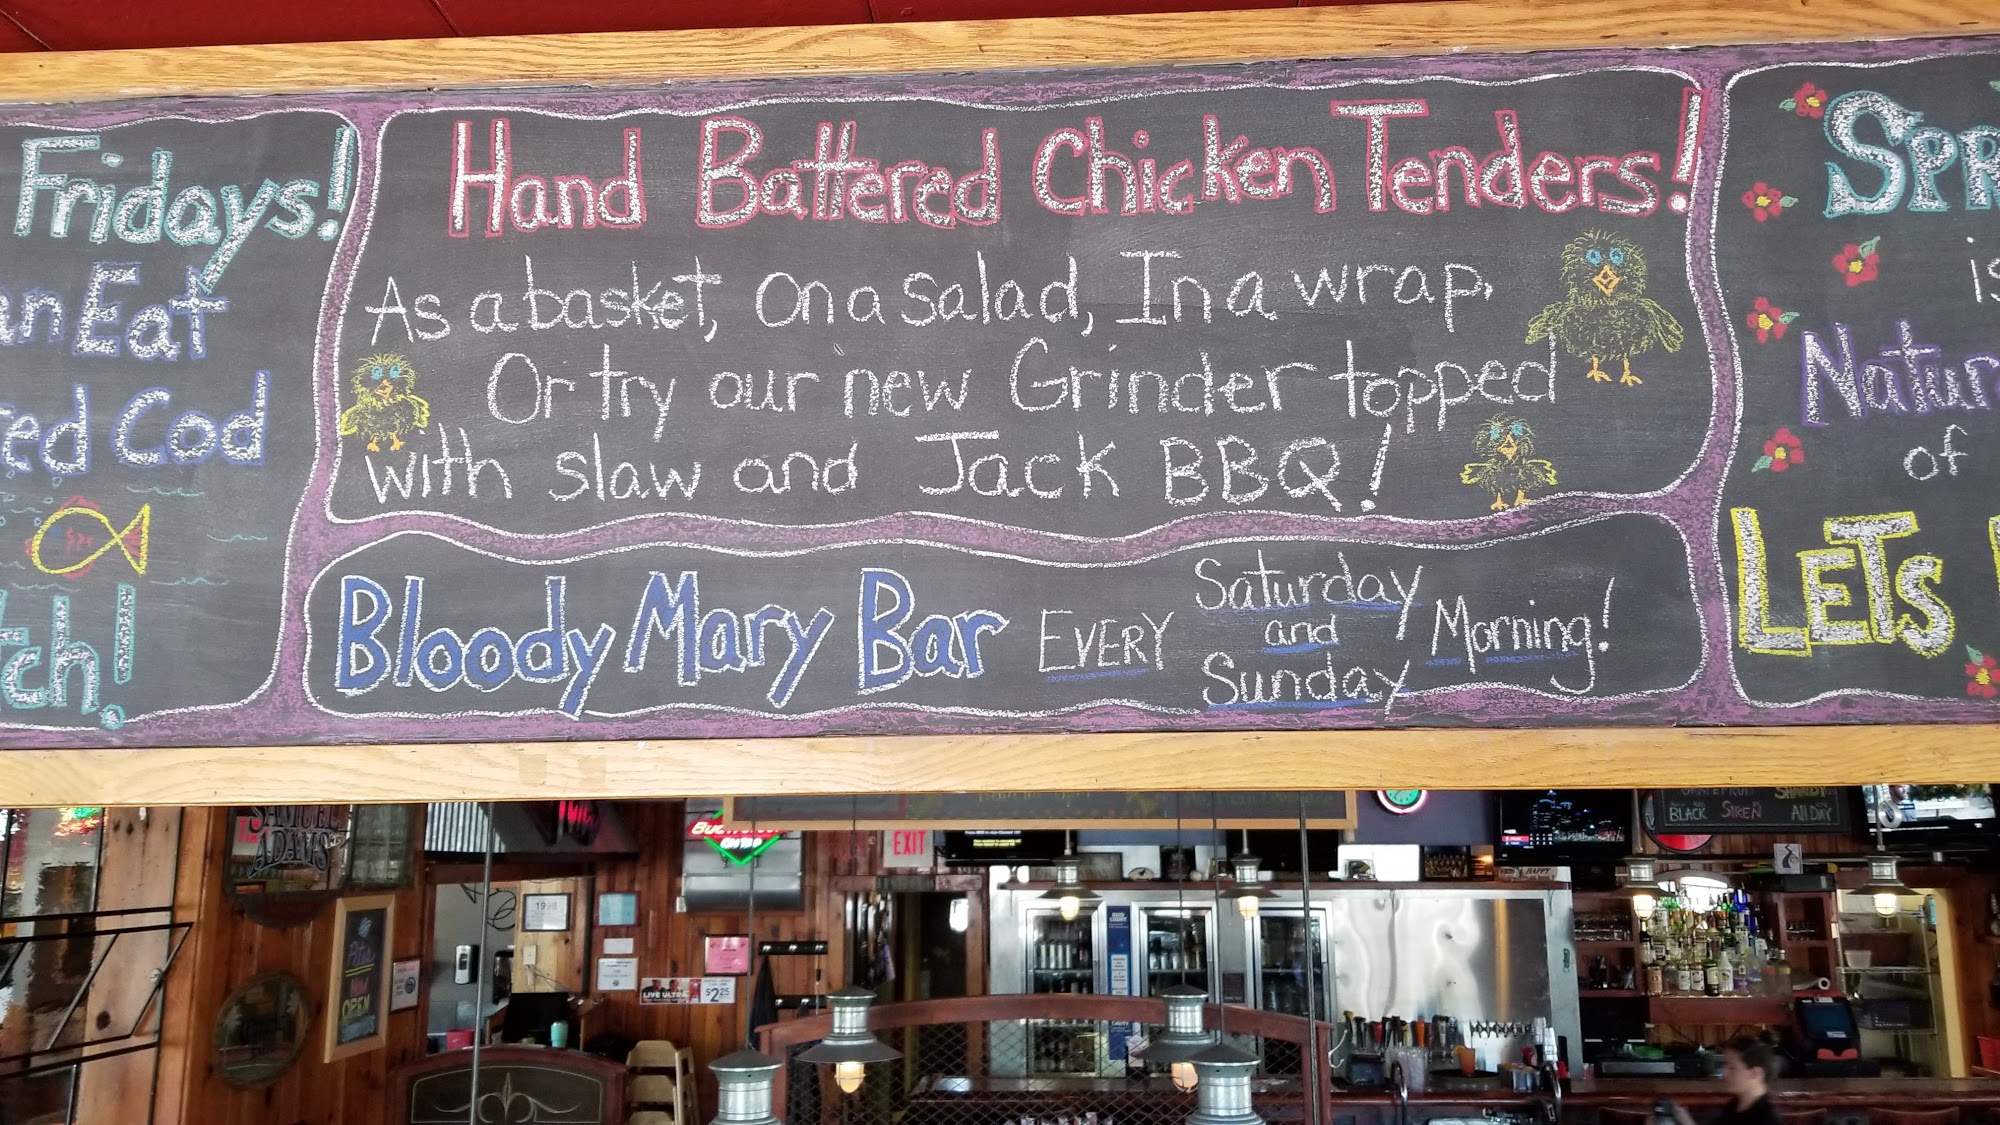 Fridays!
Eat
Cod
Hand Battered Chicken Tenders!
As a basket, On a salad, In a wrap,
Or try our new Grinder topped
with slaw and Jack BBQ!
Bloody Mary Bar EVERY Saturday and Sunday Morning!
is
of
LETS
SAMUEL
ADAMS
Budweiser
EXIT
1998
OPEN
LIVE ULTRA $2.25
BUD LIGHT
HAPPY
GRAPEFRUIT SHANDY
BLACK SIREN All DAY